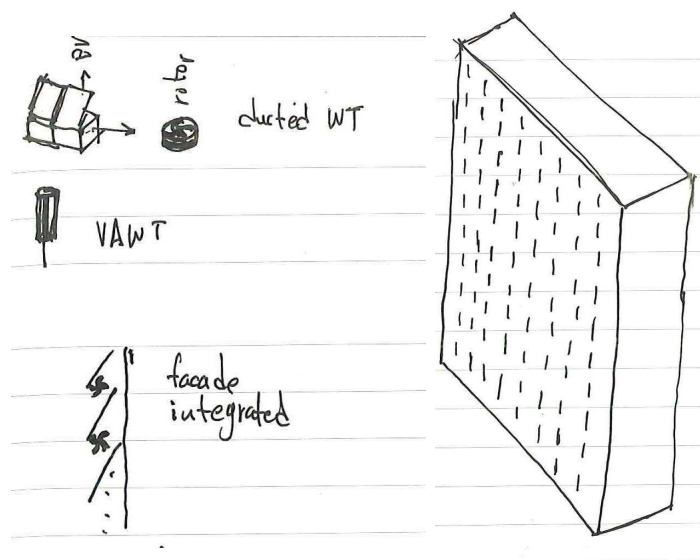 rotor
ducted WT
VAWT
facade
integrated